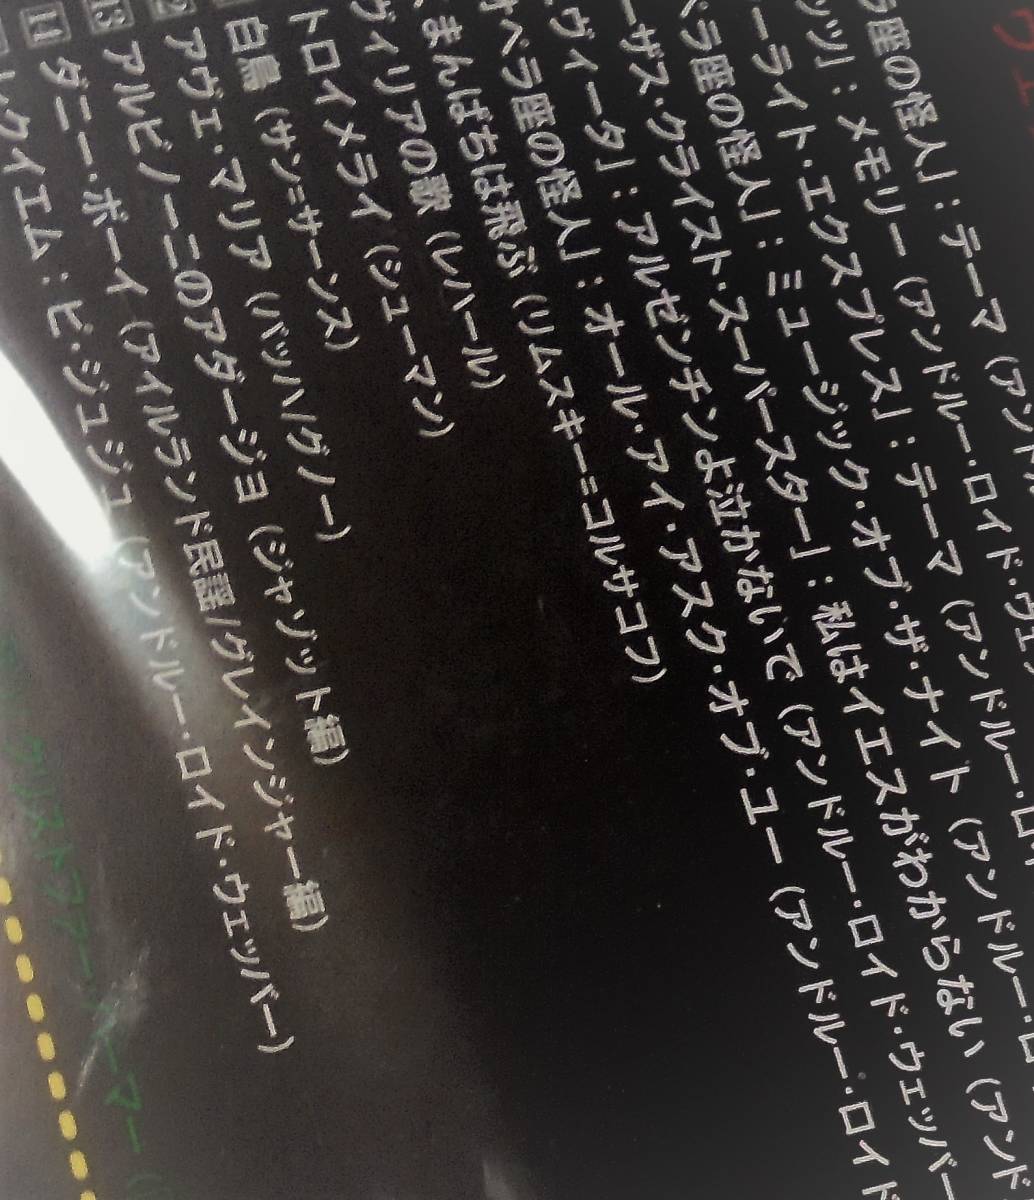 ウェ
ラ座の怪人」:テーマ（アンド
ッツ」:メモリー（アンドルー・ロイド・ウェ
ーライト・エクスプレス」:テーマ（アンドルー・ロイ
ペラ座の怪人」:ミュージック・オブ・ザ・ナイト（アンドルー・ロ
ーザス・クライスト・スーパースター」:私はイエスがわからない（アンド
ヴィータ」:アルゼンチンよ泣かないで（アンドルー・ロイド・ウェッバー
オペラ座の怪人」:オール・アイ・アスク・オブ・ユー（アンドルー・ロイド
まんばちは飛ぶ（リムスキー=コルサコフ）
ヴィリアの歌（レハール）
トロイメライ（シューマン）
白鳥（サン=サーンス）
2 アヴェ・マリア（バッハ/グノー）
13 アルビノーニのアダージョ（ジャゾット編）
14 ダニー・ボーイ（アイルランド民謡/グレインジャー編）
レクイエム:ピ・ジェジュ（アンドルー・ロイド・ウェッバー）
クリストファー・パーマー（